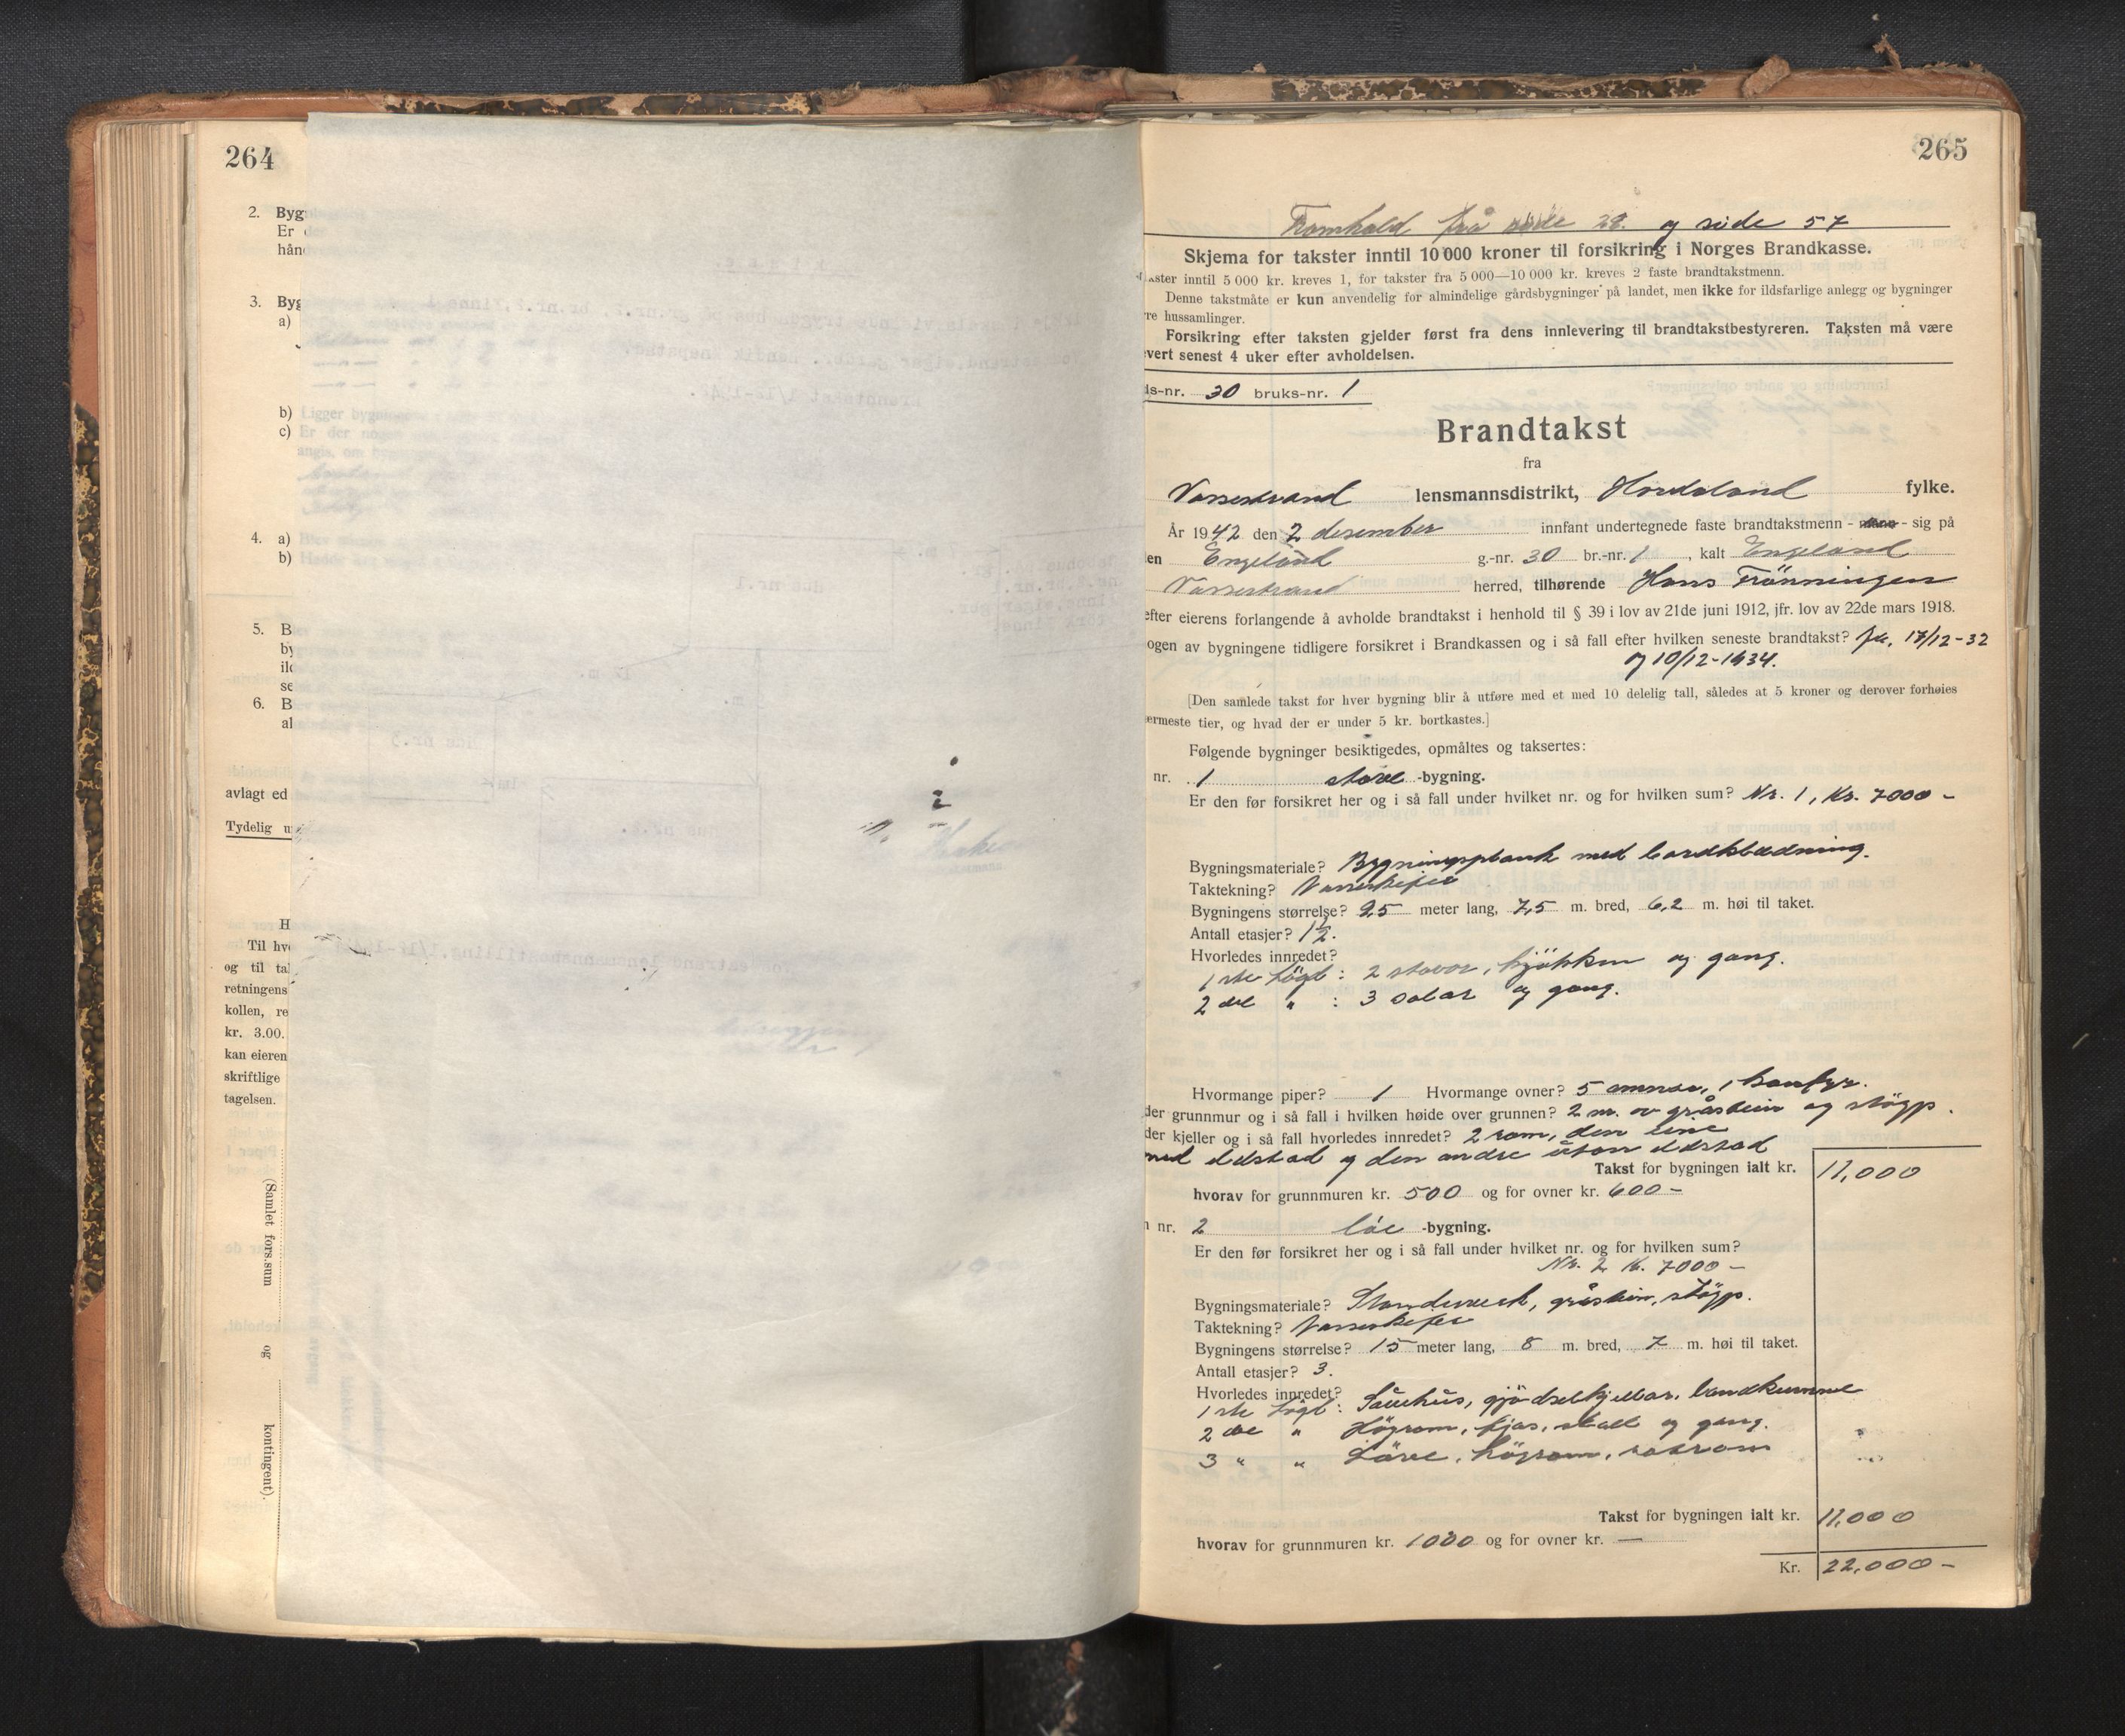 264
2. Byg
Er
hån
3. Byg
a)
b) Ligger bygningene
c) Er der nogen
4. a)
b)
5. B
by
ild
se
6. B
al
avlagt ed
Tydelig u
H
Til hv
og til tal
retningens
kollen, re
kr. 3.00.
kan eieren
skriftlige
tagelsen.
(Samlet fors.sum og kontingent).
265
Framhald frå side 28. og side 57
Skjema for takster inntil 10 000 kroner til forsikring i Norges Brandkasse.
kster inntil 5 000 kr. kreves 1, for takster fra 5 000—10 000 kr. kreves 2 faste brandtakstmenn.
Denne takstmåte er kun anvendelig for almindelige gårdsbygninger på landet, men ikke for ildsfarlige anlegg og bygninger
re hussamlinger.
Forsikring efter taksten gjelder først fra dens innlevering til brandtakstbestyreren. Taksten må være
vert senest 4 uker efter avholdelsen.
ds-nr. 30 bruks-nr. 1
Brandtakst
fra
Vossestrand lensmannsdistrikt, Hordaland fylke.
År 1942 den 2 desember innfant undertegnede faste brandtakstmenn - sig på
en Engeland g.-nr. 30 br.-nr. 1, kalt Engeland
Vossestrand herred, tilhørende Hans Trönningen
efter eierens forlangende å avholde brandtakst i henhold til § 39 i lov av 21de juni 1912, jfr. lov av 22de mars 1918.
ogen av bygningene tidligere forsikret i Brandkassen og i så fall efter hvilken seneste brandtakst? Ja, 17/12-32
og 10/12-1934.
[Den samlede takst for hver bygning blir å utføre med et med 10 delelig tall, således at 5 kroner og derover forhøies
ermeste tier, og hvad der er under 5 kr. bortkastes.]
Følgende bygninger besiktigedes, opmåltes og taksertes:
nr. 1 stove -bygning.
Er den før forsikret her og i så fall under hvilket nr. og for hvilken sum? Nr. 1, Kr. 7000 -
Bygningsmateriale? Bygningsplank med bordklædning.
Taktekning? Vosseskifer
Bygningens størrelse? 9,5 meter lang, 7,5 m. bred, 6,2 m. høi til taket.
Antall etasjer? 1½.
Hvorledes innredet?
1ste högd: 2 stovor, kjökken og gang.
2dre " : 3 salar og gang.
Hvormange piper? 1 Hvormange ovner? 5 omnar, 1 komfyr.
der grunnmur og i så fall i hvilken høide over grunnen? 2 m. av gråstein og stöyp.
der kjeller og i så fall hvorledes innredet? 2 rom, den eine
med eldstad og den andre utan eldstad
Takst for bygningen ialt kr. 11,000
hvorav for grunnmuren kr. 500 og for ovner kr. 600 -
n nr. 2 löe -bygning.
Er den før forsikret her og i så fall under hvilket nr. og for hvilken sum?
Nr. 2 K. 7000 -
Bygningsmateriale? Standverk, gråstein, stöyp.
Taktekning? Vosseskifer
Bygningens størrelse? 15 meter lang, 8 m. bred, 7 m. høi til taket.
Antall etasjer? 3.
Hvorledes innredet?
1ste högd: Sauehus, gjödselkjellar, landkumme
2dre " Höyrom, fjos, stall og gang.
3 " " Låve, höyrom,
Takst for bygningen ialt kr. 11,000
hvorav for grunnmuren kr. 1000 og for ovner kr. —
Kr. 22,000 -